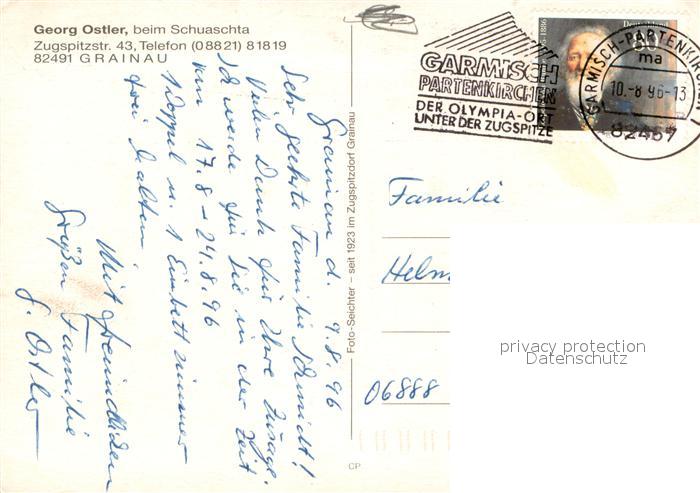 Georg Ostler, beim Schuaschta
Zugspitzstr. 43, Telefon (08821) 81819
82491 GRAINAU
Grainau d. 9.8.96
Sehr geehrte Familie Schmidt!
Vielen Dank für Ihre Zusage.
Ich werde für Sie in der Zeit
vom 17.8 – 24.8.96
1 Doppel u. 1 Einbettzimmer
frei halten
Mit freundlichen
Grüßen Familie
G. Ostler
Foto-Seichter – seit 1923 im Zugspitzdorf Grainau
CP
GARMISCH
PARTENKIRCHEN
DER OLYMPIA-ORT
UNTER DER ZUGSPITZE
1886
Deutschland
80
GARMISCH-PARTENKIR
ma
10.-8.96-13
82467
Familie
Helm
06888
privacy protection
Datenschutz